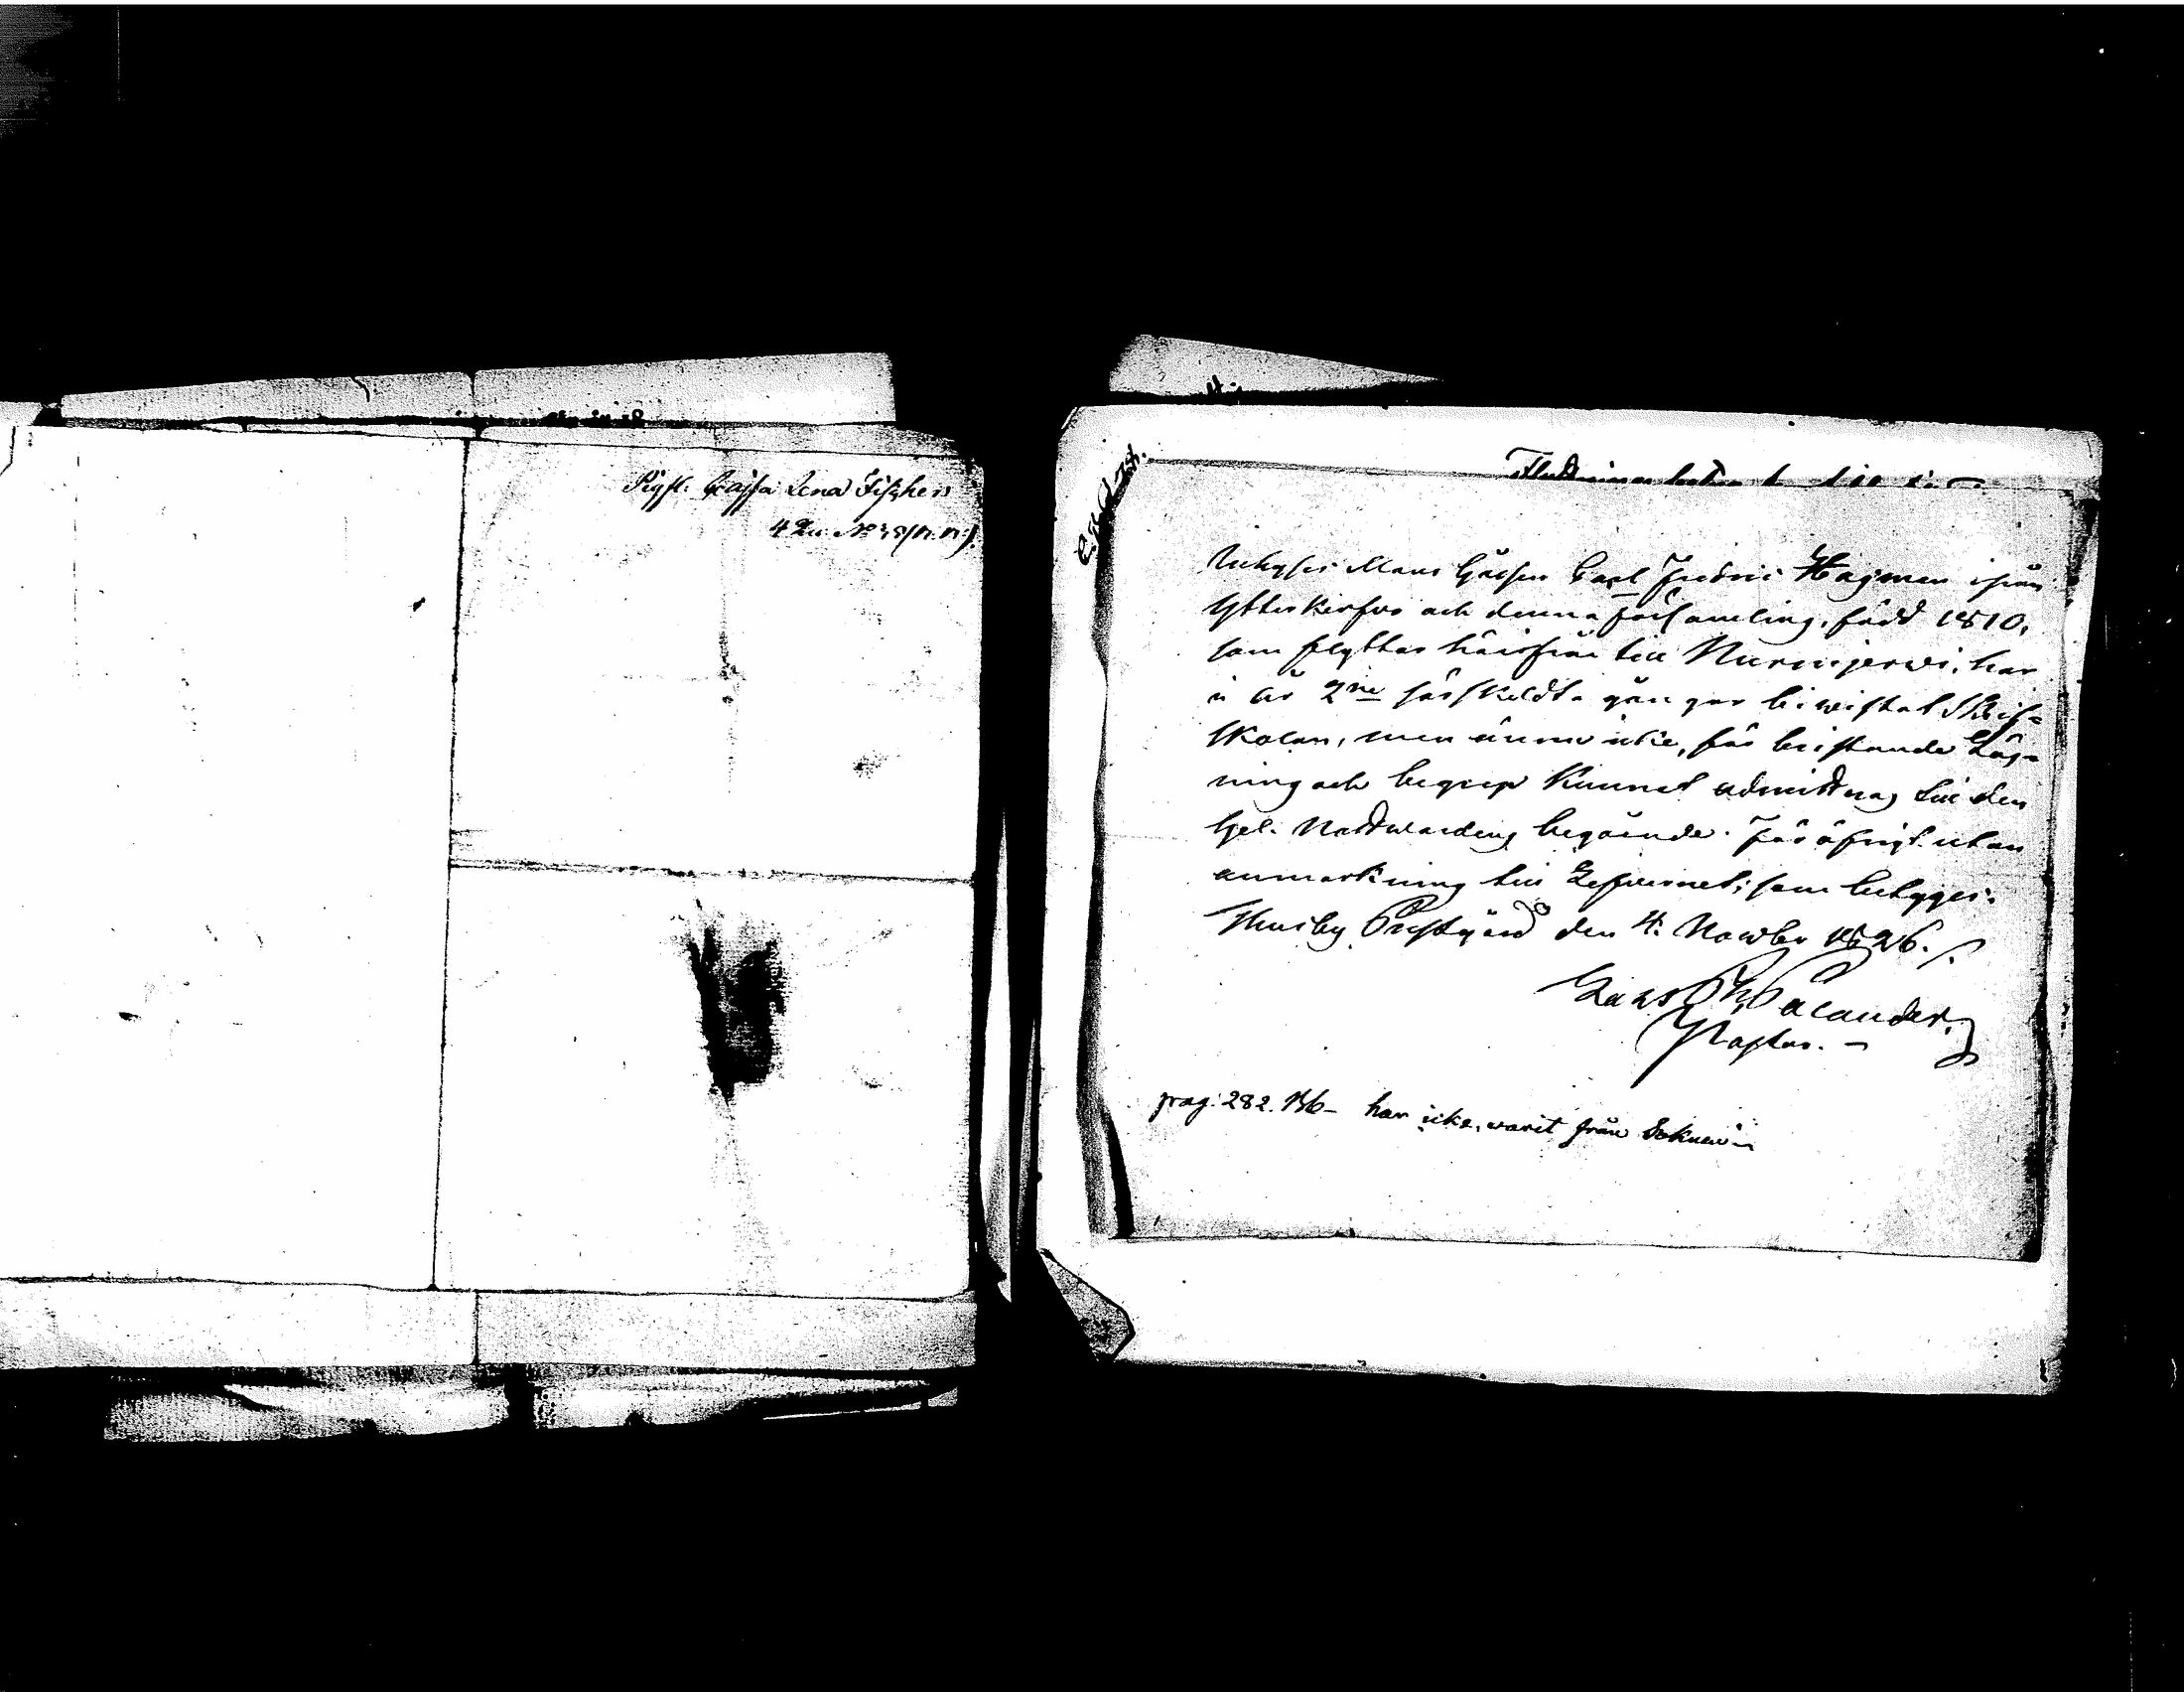 Pigk. Cajsa Lena Fischer
4 Qu. N:o 38
Uchyses Mans Gåssen Carl Fredric Hagman ifrån
Ytterkerfvo och denna församling, född 1810,
som flyttar härifrån till Nurmijerwi, har
i år 2ne särskildta gångor biwistat Skrift-
skolan, men ännu icke, för bristande Läs-
ning och begrep kunnat admitteras till den
Hel. Nattwardens begående. För öfrigt utan
anmärkning till Lefwernet; som betyges.
Thusby Prestgård den 4. Nowbr 1826.
Lars Palander,
Pastor.
pag: 282. B6 - har icke warit från Soknen